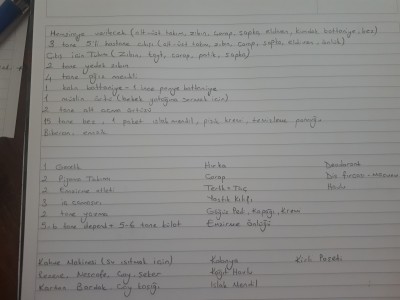 Hemşireye verilecek (alt-üst takım, zıbın, çorap, şapka, eldiven, kundak, battaniye, bez)
3 tane hastane çıkışı (alt-üst takım, zıbın, çorap, şapka, eldiven, önlük)
Çıkış için Takım (zıbın, çorap, patik, şapka)
2 tane yedek zıbın
4 tane ağız mendili
1 kalın battaniye + 1 tane penye battaniye
1 müslin örtü (bebek yatağına sermek için)
2 tane alt açma örtüsü
15 tane bez, 1 paket ıslak mendil, pişik kremi, temizleme pamuğu
Biberon, emzik
1 Gecelik Hırka Deodorant
2 Pijama Takımı Çorap Diş fırçası - macunu
2 Emzirme atleti Terlik + Taç Havlu
3 iç çamaşırı Yastık Kılıfı
2 tane yazma Göğüs Pedi, Kapağı, Krem
5-6 tane depend + 5-6 tane külot Emzirme Önlüğü
Kahve Makinesi (su ısıtmak için) Kolonya Kirli Poşeti
Nescafe, Çay, Şeker Kağıt Havlu
Karton Bardak, Çay kaşığı Islak Mendil